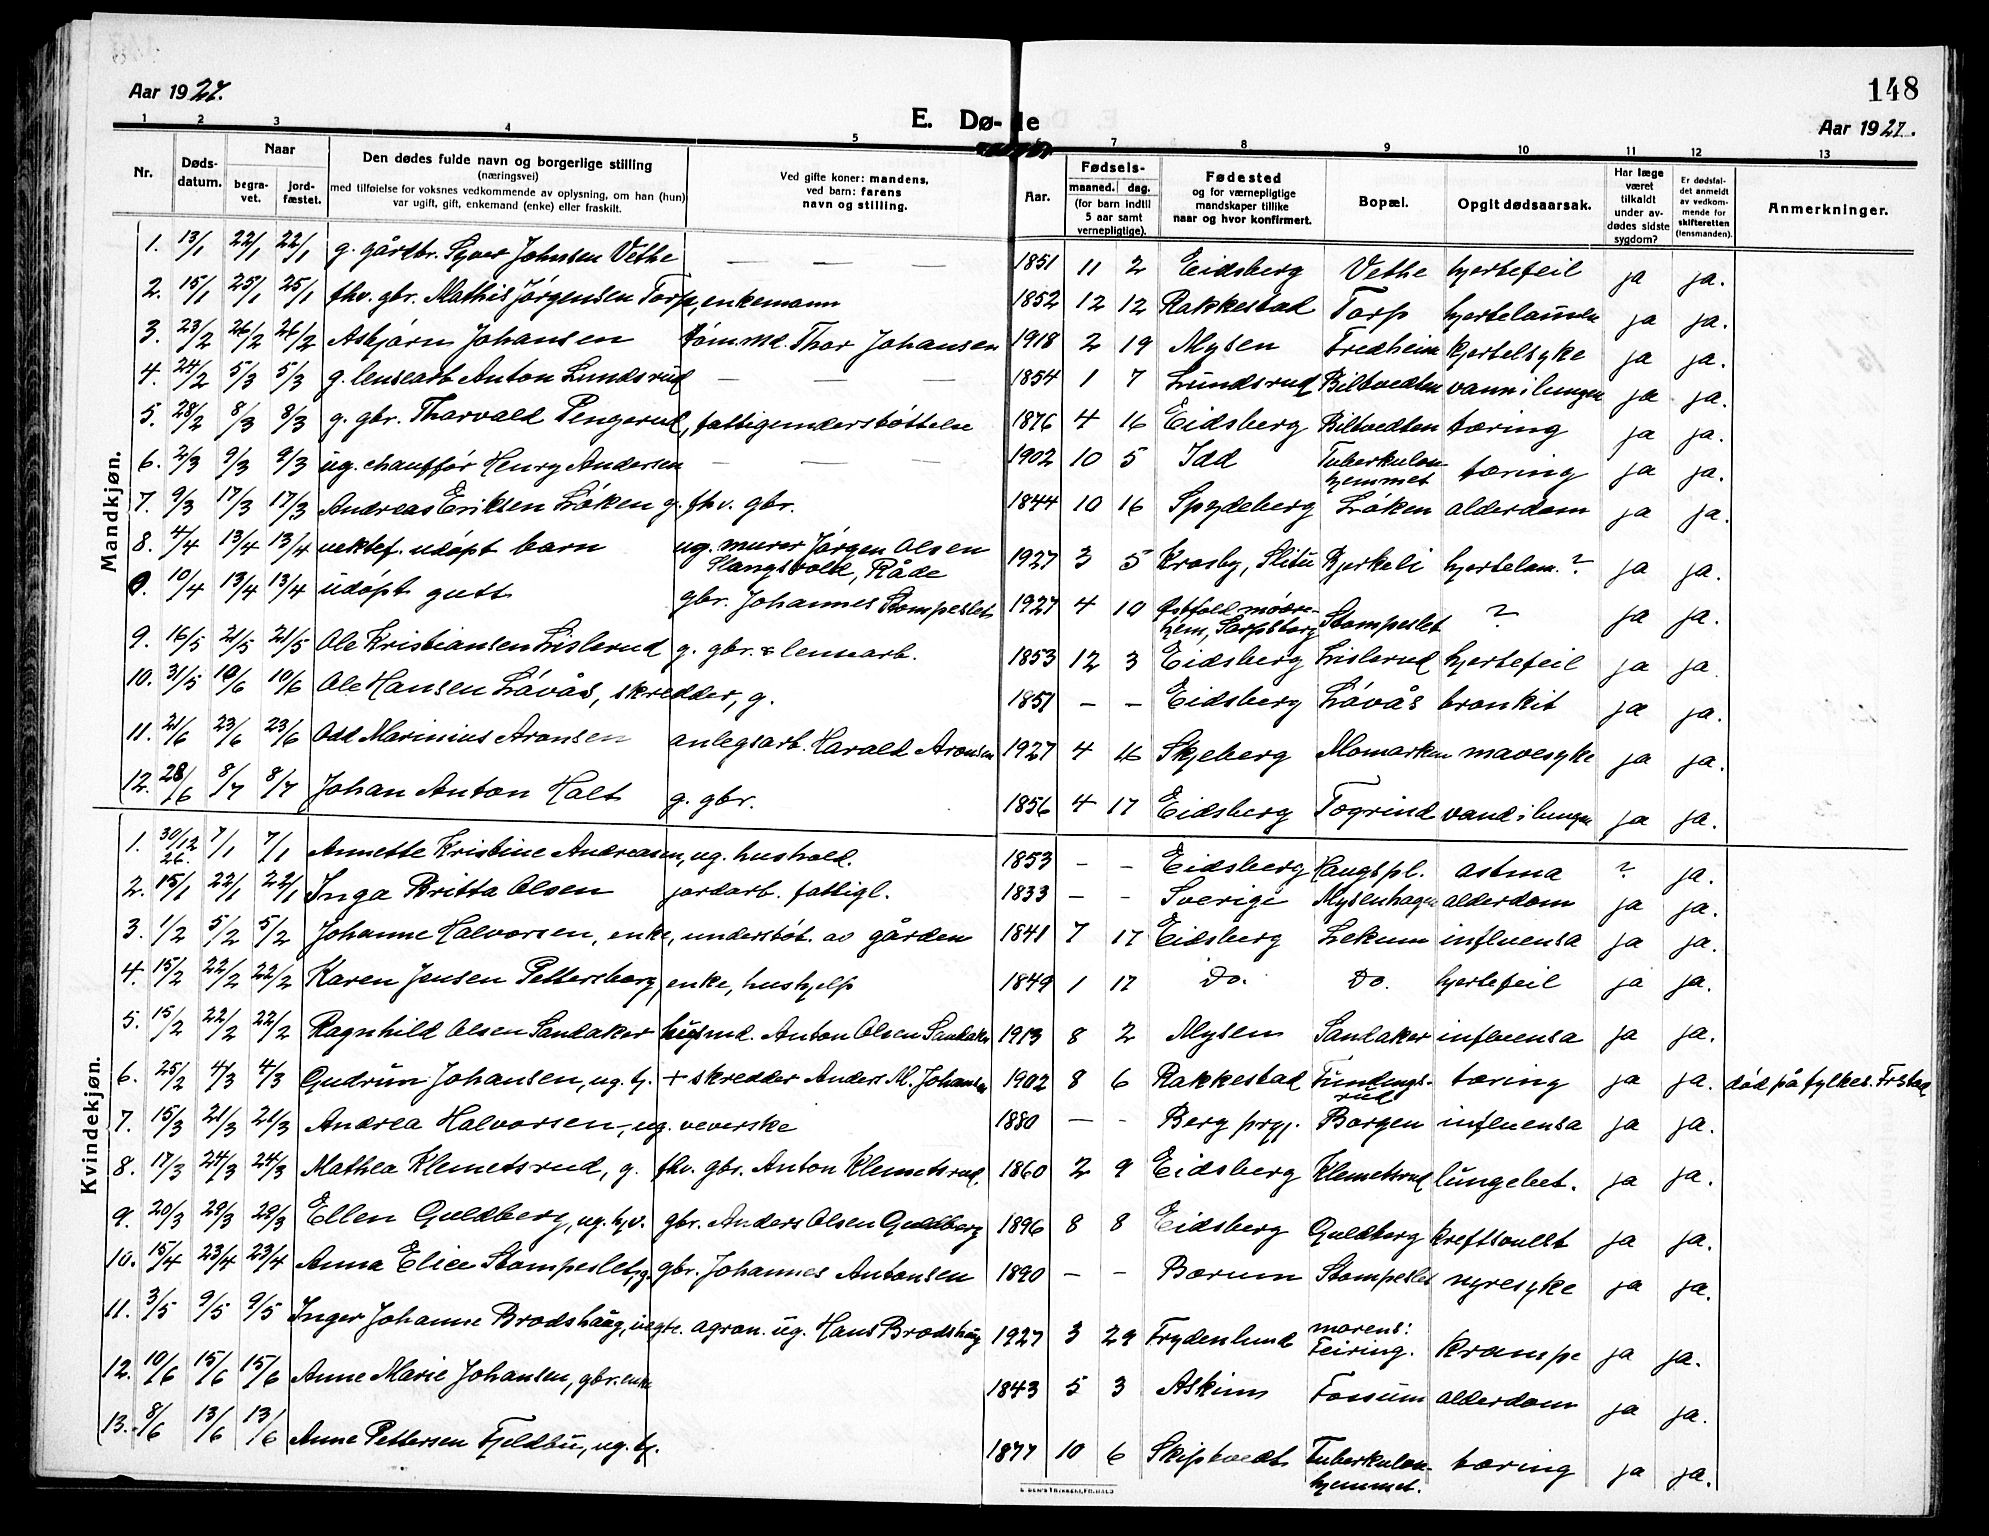 148
Aar 1927.
E. Dø- de
Aar 1927.
1 2 3 4 5 7 8 9 10 11 12 13
Nr. Døds-datum. Naar begra-vet. jord-fæstet. Den dødes fulde navn og borgerlige stilling (næringsvei) med tilføielse for voksnes vedkommende av oplysning, om han (hun) var ugift, gift, enkemand (enke) eller fraskilt. Ved gifte koner: mandens, ved barn: farens navn og stilling. Aar. Fødsels- maaned. dag. (for barn indtil 5 aar samt vernepligtige). Fødested og for værnepligtige mandskaper tillike naar og hvor konfirmert. Bopæl. Opgit dødsaarsak. Har læge været tilkaldt under av-dødes sidste sygdom? Er dødsfal-det anmeldt av vedkom-mende for skifteretten (lensmanden). Anmerkninger.
Mandkjøn.
1. 13/1 22/1 22/1 g. gårdbr. Syver Johnsen Vethe — — — 1851 11 2 Eidsberg Vethe hjertefeil ja ja.
2. 15/1 25/1 25/1 fhv. gbr. Mathis Jørgensen Torp, enkemann 1852 12 12 Rakkestad Torp hjertelammelse ja ja.
3. 23/2 26/2 26/2 Asbjørn Johansen tømmd. Thor Johansen 1918 2 19 Mysen Fredheim kjertelsyke ja ja.
4. 24/2 5/3 5/3 g. lensearb Anton Lundsrud — — — 1854 1 7 Lundsrud Biltvedten vann i lungen ja ja.
5. 28/2 8/3 8/3 g. gbr. Thorvald Pengerud, fattigunderstøttelse 1876 4 16 Eidsberg Biltvedten tæring ja ja.
6. 2/3 9/3 9/3 ug. chauffør Henry Andersen — — — 1902 10 5 Idd Tuberkulon-hjemmet tæring ja ja.
7. 9/3 17/3 17/3 Andreas Eriksen Løken g. fhv. gbr. 1844 10 16 Spydeberg Løken alderdom ja ja.
8. 4/4 13/4 13/4 uektef. udøpt barn ug. murer Jørgen Olsen Slangsvold, Råde 1927 3 5 Krosby, Slitu Bjerkeli hjertelam.? ja ja.
0. 10/4 13/4 13/4 udøpt gutt gbr. Johannes Stompeslet 1927 4 10 Østfold mødre-hjem, Sarpsborg Stompeslet ? ja ja.
9. 16/5 21/5 21/5 Ole Kristiansen Lislerud g. gbr. & lensearb. 1853 12 3 Eidsberg Lislerud hjertefeil ja ja.
10. 31/5 10/6 10/6 Ole Hansen Løvås, skredder, g. 1851 — — Eidsberg Løvås bronkit ja ja.
11. 21/6 23/6 23/6 Odd Marinius Aronsen anlegsarb. Harald Aronsen 1927 4 16 Skjeberg Momarken mavesyke ja ja.
12. 28/6 8/7 8/7 Johan Anton Holt g. gbr. 1856 4 17 Eidsberg Togrind vand i lungen ja ja.
Kvindekjøn.
1. 30/12 26. 7/1 7/1 Annette Kristine Andreasen, ug. hushold. 1853 — — Eidsberg Haugspl. astma ? ja.
2. 15/1 22/1 22/1 Inga Britta Olsen jordarb. fattigl. 1833 — — Sverige Mysenhagen alderdom ja ja.
3. 1/2 5/2 5/2 Johanne Halvorsen, enke, understøt. av gården 1841 7 17 Eidsberg Lekum influensa ja ja.
4. 15/2 22/2 22/2 Karen Jensen Pettersborg, enke, hushjelp 1849 1 17 Do. Do. hjertefeil ja ja.
5. 15/2 22/2 22/2 Ragnhild Olsen Sandaker husmd. Anton Olsen Sandaker 1913 8 2 Mysen Sandaker influensa ja ja.
6. 25/2 4/3 4/3 Gudrun Johansen, ug. tj. + skredder Anders M. Johansen 1902 8 6 Rakkestad Fundings-rud tæring ja ja. død på fylkes. Frstad
7. 15/3 21/3 21/3 Andrea Halvorsen, ug. veverske 1880 — — Berg prgj. Borgen influensa ja ja.
8. 17/3 24/3 24/3 Mathea Klemetsrud, g. fhv. gbr. Anton Klemetsrud. 1860 2 9 Eidsberg Klemetsrud lungebet. ja ja.
9. 20/3 29/3 29/3 Ellen Guldberg, ug. hjv. gbr. Anders Olsen Guldberg 1896 8 8 Eidsberg Guldberg kreftsvulst ja ja.
10. 15/4 23/4 23/4 Anna Elice Stompeslet, g. gbr. Johannes Antonsen 1890 — — Bærum Stompeslet nyresyke ja ja.
11. 3/5 9/5 9/5 Inger Johanne Brodshaug, uegte. agron. ug. Hans Brodshaug 1927 3 29 Frydenlund morens: Feiring. krampe ja ja.
12. 10/6 15/6 15/6 Anne Marie Johansen, gbr.enke 1843 5 3 Askim Fossum alderdom ja ja.
13. 8/6 13/6 13/6 Anne Pettersen Fjeldbu, ug. tj. 1877 10 6 Skiptvedt Tuberkulon-hjemmet. tæring ja ja.